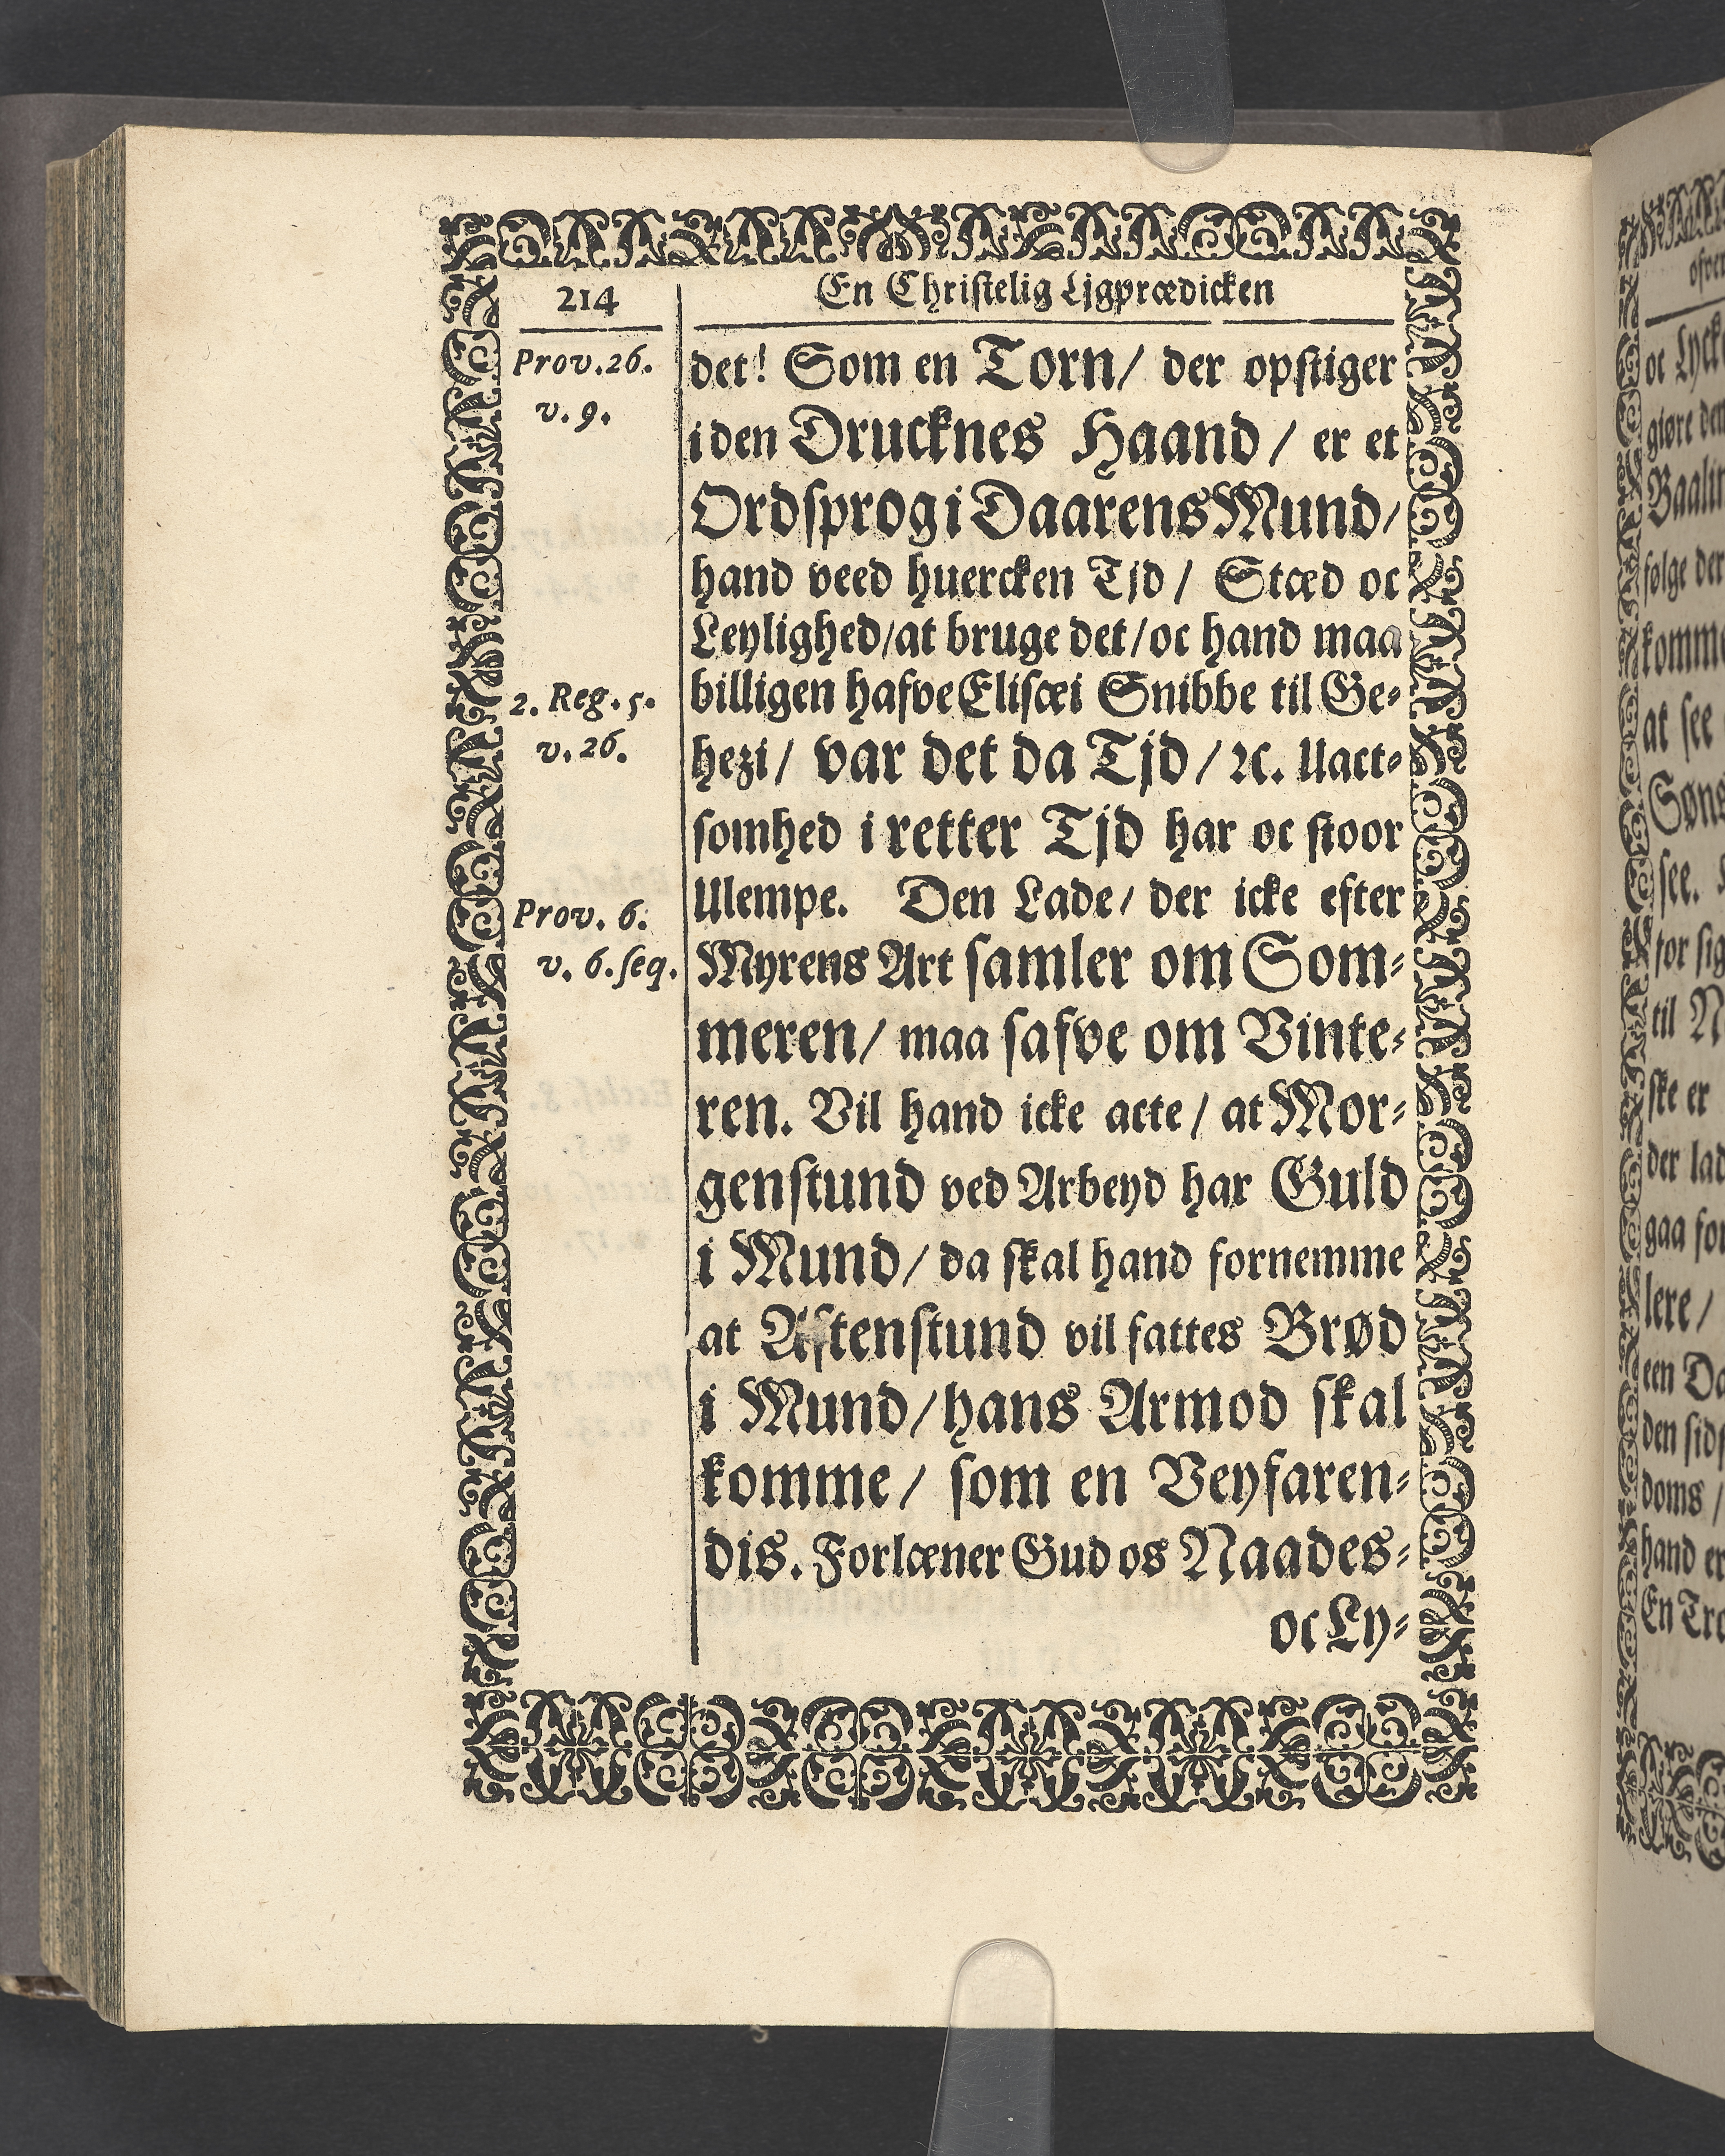 214
En Christelig Ljgprædicken
Prov. 26.
v. 9.
2. Reg. 5.
v. 26.
Prov. 6.
v. 6. seq.
det! Som en Torn/ der opstiger
i den Drucknes Haand/ er et
Ordsprog i Daarens Mund/
hand veed huercken Tjd/ Stæd oc
Leylighed/at bruge det/oc hand maa
billigen hafve Elisæi Snibbe til Ge-
hezi/ var det da Tjd/ ꝛc. Uact-
somhed i retter Tjd har oc stoor
Ulempe. Den Lade/ der icke efter
Myrens Art samler om Som-
meren/ maa safve om Vinte-
ren. Vil hand icke acte/ at Mor-
genstund ved Arbeyd har Guld
i Mund/ da skal hand fornemme
at Aftenstund vil fattes Brød
i Mund/hans Armod skal
komme/ som en Veyfaren-
dis. Forlæner Gud os Naades-
oc Ly-